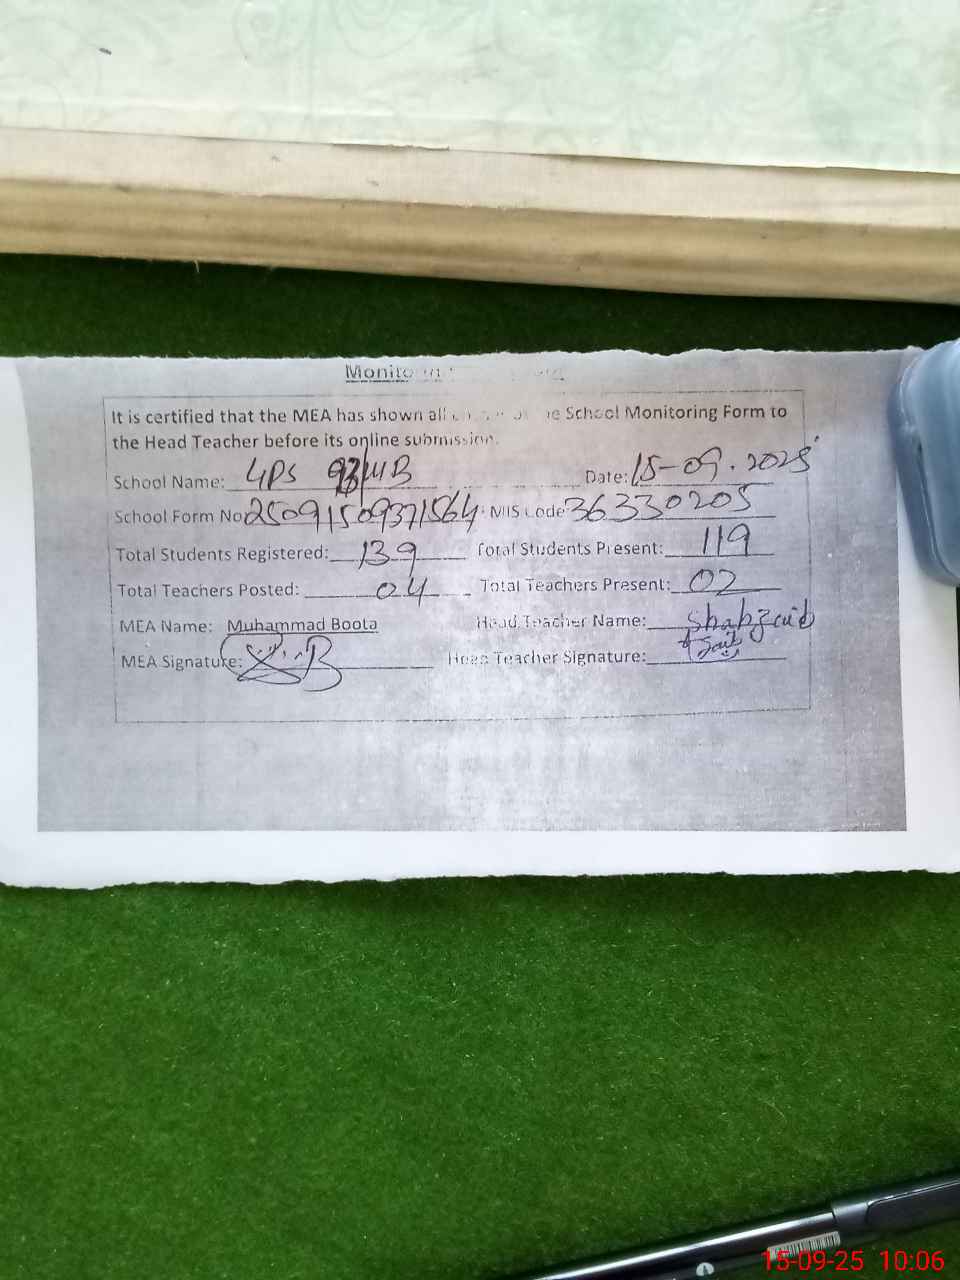 It is certified that the MEA has shown all School Monitoring Form to
the Head Teacher before its online submission.
School Name: GPS 93/MB Date: 15-09-2025
School Form No 25091509371564 MIS Code 36330205
Total Students Registered: 139 Total Students Present: 119
Total Teachers Posted: 04 Total Teachers Present: 02
MEA Name: Muhammad Boota Head Teacher Name: Shahzaib
MEA Signature: Head Teacher Signature:
15-09-25 10:06